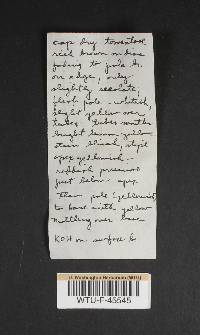 cap dry tomentose
rich brown
fading to pale
on edge, only
slightly
flesh pale - whitish,
slight yellow over
tubes tubes mouths
bright lemon-yellow
stain, stipe
apex yellowish -
reddish
just below apex
then pale (yellowish)
to base with yellow
mottling over base
KOH on surface
U. Washington Herbarium (WTU)
WTU-F-45545